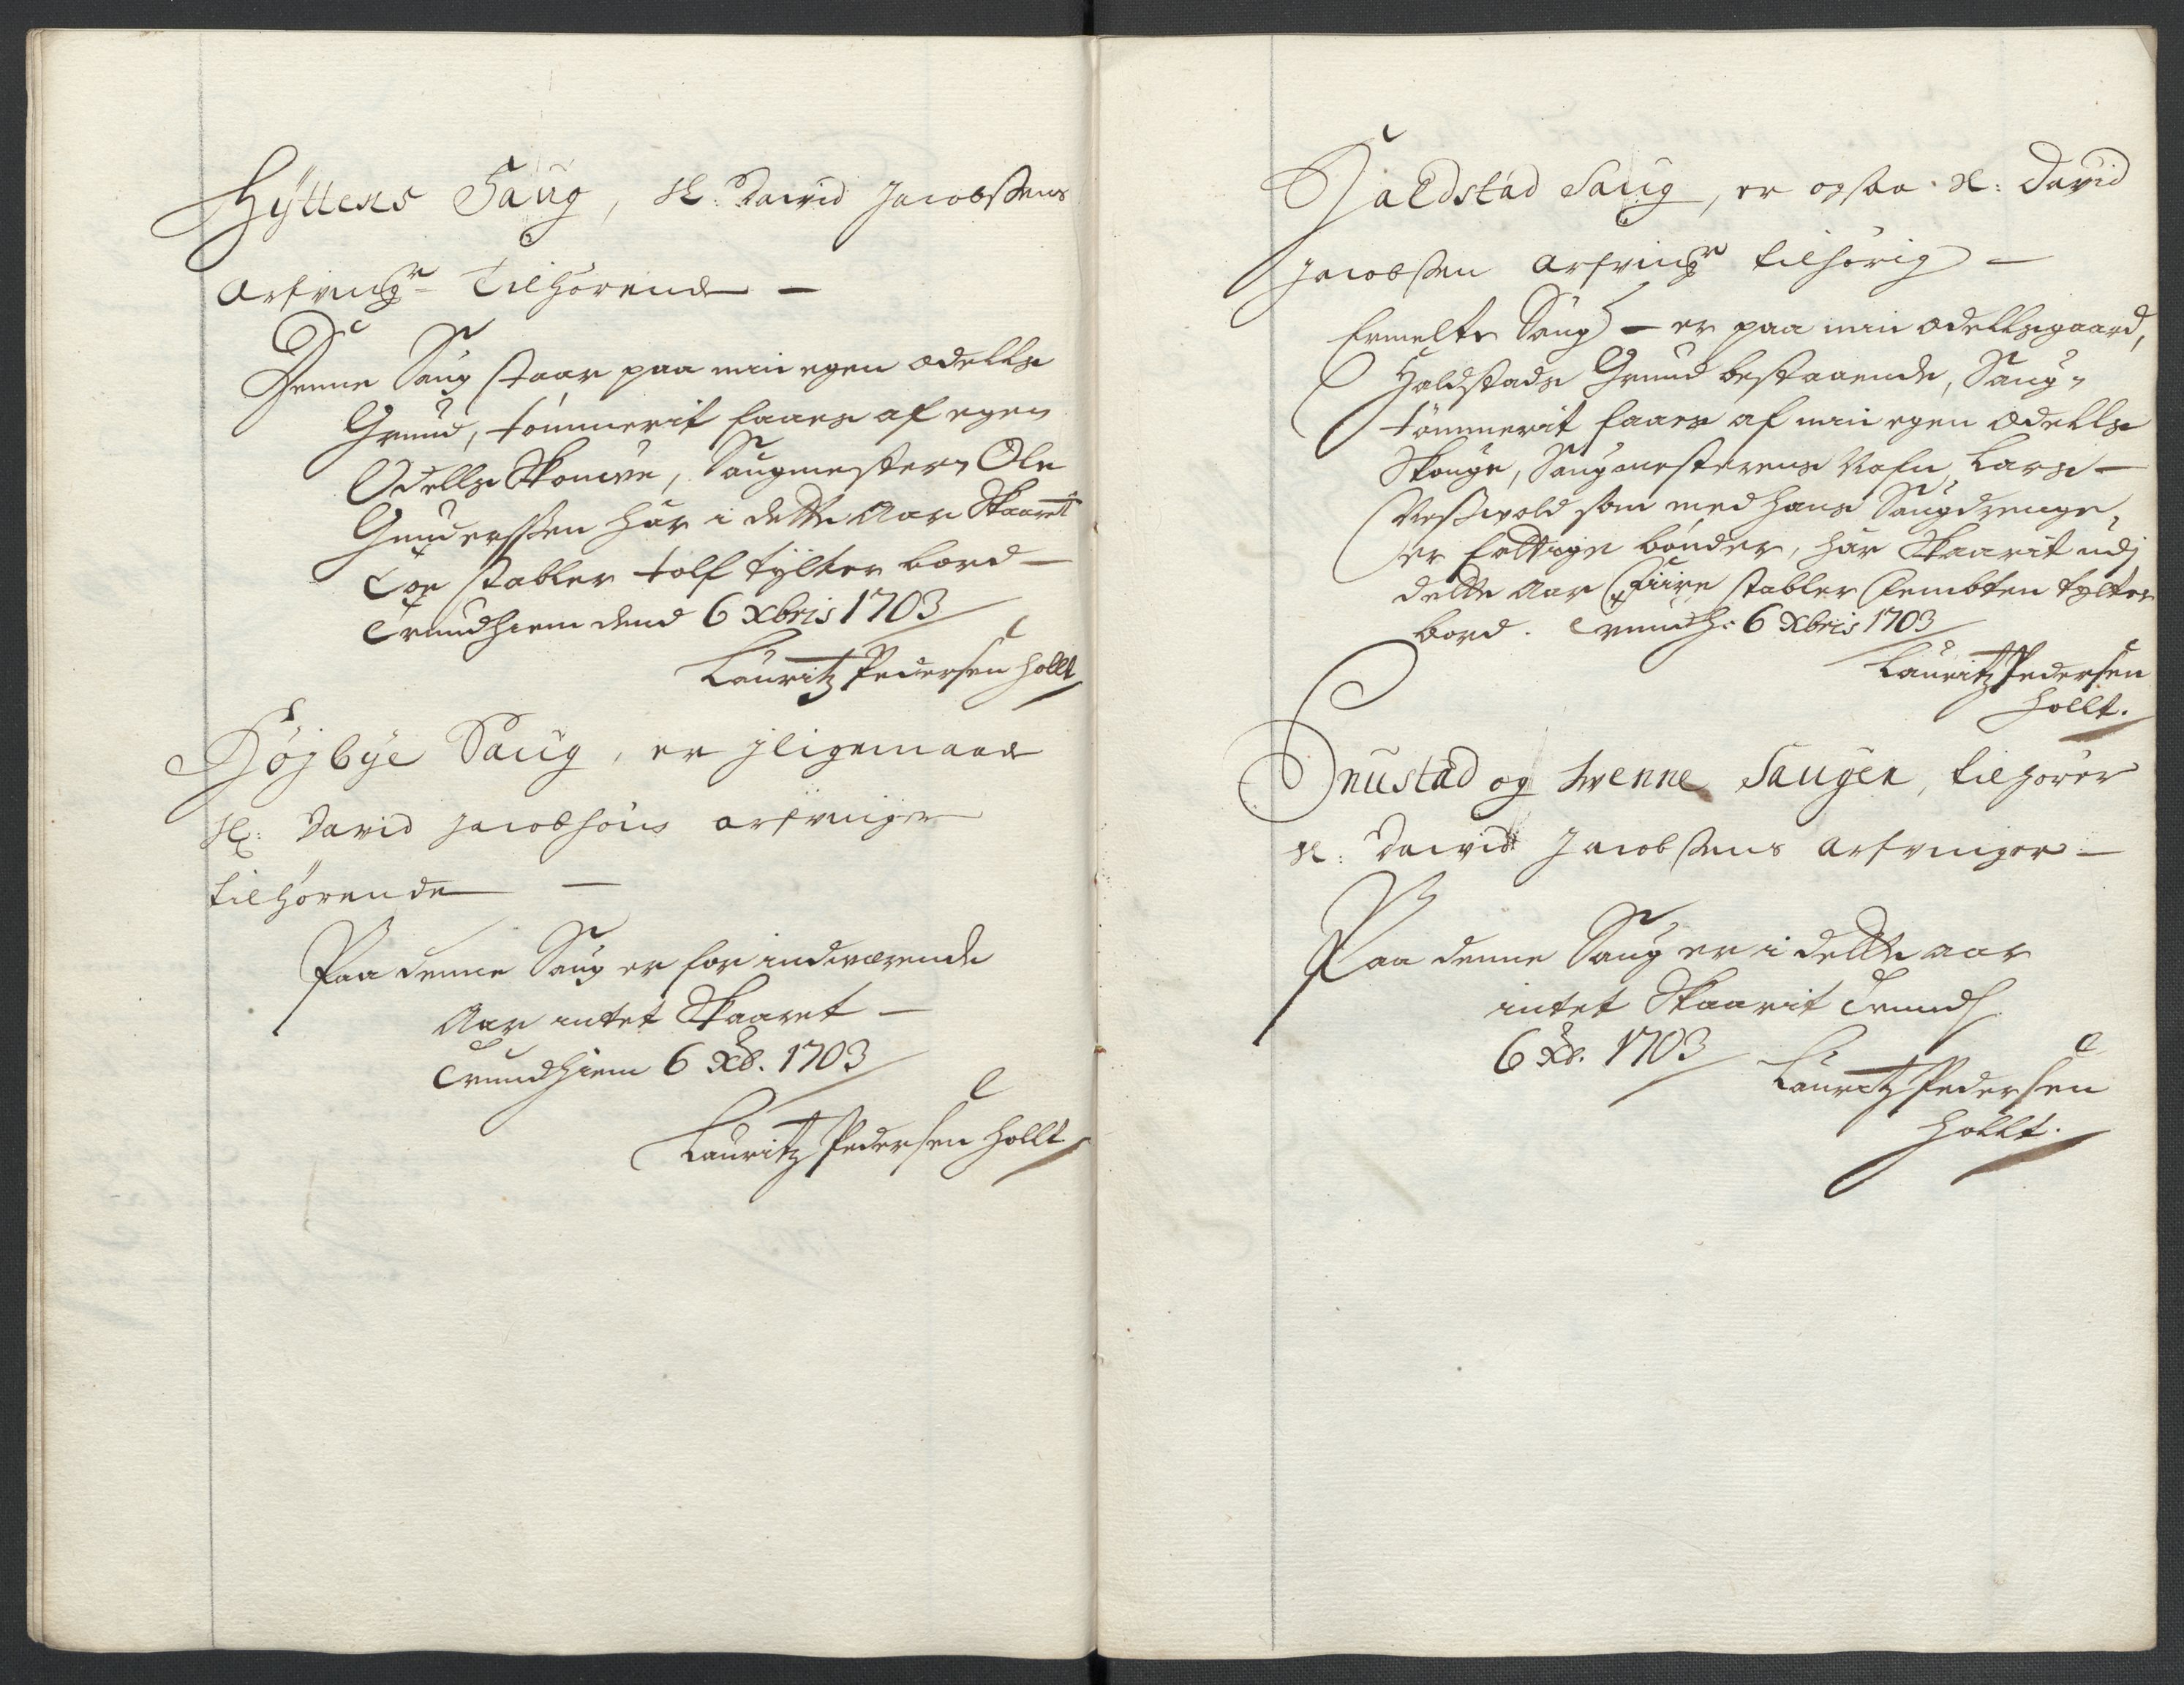 Hÿttens Saug, Sl: David Jacobsens
Arfving^r Tilhørende —
Denne Saug staar paa min egen odells
Grund, tømmerit faaes af egen
Odells Skouve, Saugmester Ole
Gunderssen har i dette Aar Skaaret
Toe stabler tolf tylter bord —
Trundhiem dend 6 Xbris 1703
Lauritz Pedersen Hollt
Højbye Saug, er jligemaade
Sl: David Jacobsøns arfvinger
tilhørende —
Paa denne Saug er for indeværende
Aar intet Skaaret —
Trundhiem 6 Xb. 1703
Lauritz Pedersen Hollt
Haldstad Saug, er ogsaa Sl: David
Jacobsen Arfving^r tilhørig —
bemelte Saug — er paa min odellsgaard,
Haldstads Grund bestaaende, Saug-
tømmerit faaes af min egen odells
Skouge, Saugmesterens Nafn, Lars —
som med hans Saugdrenge,
er fattige bønder, har Skaarit udj
dette Aar Fiire stabler Fembten tylter
bord. Trundh: 6 Xbris 1703
Lauritz Pedersen
Hollt.
Snustad og Svenne Saugen, tilhører
Sl: David Jacobsens Arfvinger —
Paa denne Saug er i dette aar
intet Skaarit Trundh
6 Xb. 1703
Lauritz Pedersen
Hollt.